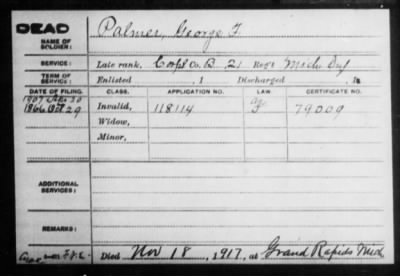 DEAD
NAME OF SOLDIER: Palmer, George F.
SERVICE: Late rank, Corp'l Co. B, 21 Reg't Mich Inf
TERM OF SERVICE: Enlisted , 1 Discharged , 1
DATE OF FILING. CLASS. APPLICATION NO. LAW. CERTIFICATE NO.
1907 30
1866 Oct 29 Invalid, 118114 79009
Widow,
Minor,
ADDITIONAL SERVICES:
REMARKS:
Died Nov 18, 1917, at Grand Rapids Mich